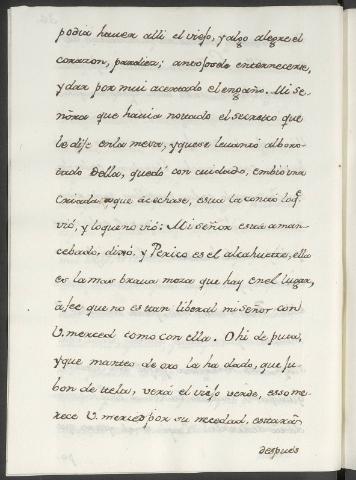 podia haver alli el viejo, y algo alegre el
corazon, paralizo; antojósele enternecerse,
y dar por mui acertado el engaño. Mi se-
ñora que havia notado el secreto que
le dije en la mesa, y que se levantó alboro-
tado della, quedó con cuidado, embió una
Criada a que acechase, esta la contó loq.e
vió, y loque no vió: Mi señor está aman-
cebado, dixo, y Perico es el alcahuete, ella
es la mas brava moza que hay en el lugar,
à fee que no es tan liberal mi señor con
V.merced como con ella. O hi de puta,
y que manteo de oro la ha dado, que ju-
bon de tela, verá el viejo verde, esso me-
rece V. merced por su necedad, estarán
después